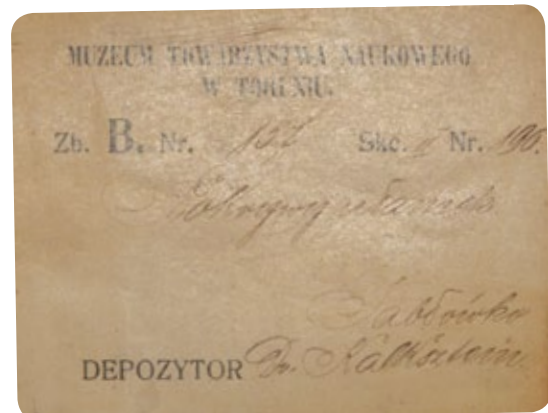 MUZEUM TOWARZYSTWA NAUKOWEGO
W TORUNIU.
Zb. B. Nr. 157 Skc. II Nr. 190.
Jabłówko
DEPOZYTOR Dr. Kalkstein